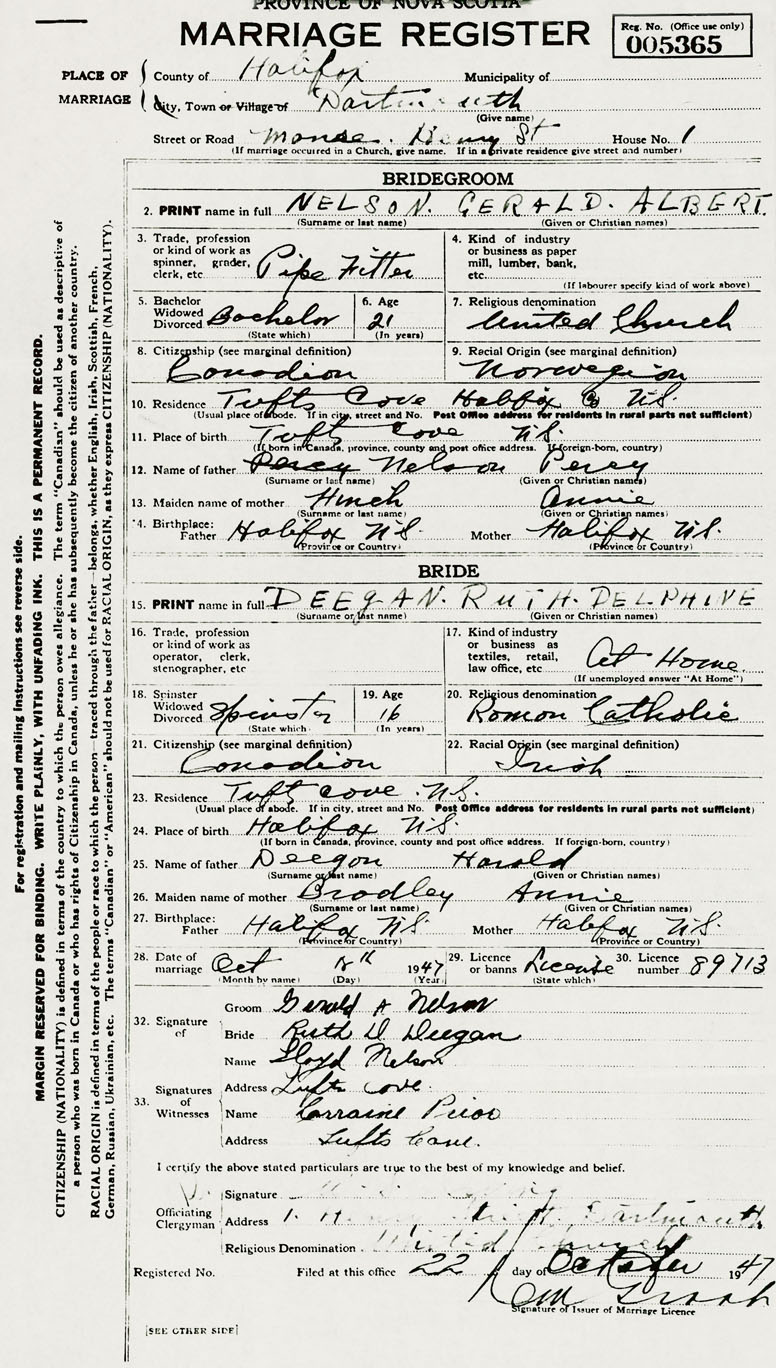 PROVINCE OF NOVA SCOTIA
MARRIAGE REGISTER
Reg. No. (Office use only)
005365
PLACE OF MARRIAGE
County of Halifax Municipality of
City, Town or Village of Dartmouth
(Give name)
Street or Road Manse. Henry St House No. 1
(If marriage occurred in a Church, give name. If in a private residence give street and number)
BRIDEGROOM
2. PRINT name in full NELSON. GERALD. ALBERT.
(Surname or last name) (Given or Christian names)
3. Trade, profession or kind of work as spinner, grader, clerk, etc. Pipe Fitter
4. Kind of industry or business as paper mill, lumber, bank, etc.
(If labourer specify kind of work above)
5. Bachelor Widowed Divorced Bachelor
(State which)
6. Age 21
(In years)
7. Religious denomination
United Church
8. Citizenship (see marginal definition)
Canadian
9. Racial Origin (see marginal definition)
Norwegian
10. Residence Tufts Cove Halifax Co N.S.
(Usual place of abode. If in city, street and No. Post Office address for residents in rural parts not sufficient)
11. Place of birth Tufts Cove N.S.
(If born in Canada, province, county and post office address. If foreign-born, country)
12. Name of father Percy Nelson Percy
(Surname or last name) (Given or Christian names)
13. Maiden name of mother Hinch Annie
(Surname or last name) (Given or Christian names)
14. Birthplace: Father Halifax N.S. Mother Halifax N.S.
(Province or Country) (Province or Country)
BRIDE
15. PRINT name in full DEEGAN. RUTH. DELPHINE
(Surname or last name) (Given or Christian names)
16. Trade, profession or kind of work as operator, clerk, stenographer, etc
17. Kind of industry or business as textiles, retail, law office, etc At Home
(If unemployed answer "At Home")
18. Spinster Widowed Divorced Spinster
(State which)
19. Age 16
(In years)
20. Religious denomination
Roman Catholic
21. Citizenship (see marginal definition)
Canadian
22. Racial Origin (see marginal definition)
Irish
23. Residence Tufts cove. N.S.
(Usual place of abode. If in city, street and No. Post Office address for residents in rural parts not sufficient)
24. Place of birth Halifax N.S.
(If born in Canada, province, county and post office address. If foreign-born, country)
25. Name of father Deegan Harold
(Surname or last name) (Given or Christian names)
26. Maiden name of mother Bradley Annie
(Surname or last name) (Given or Christian names)
27. Birthplace: Father Halifax N.S. Mother Halifax N.S.
(Province or Country) (Province or Country)
28. Date of marriage Oct 1947
(Month by name) (Day) (Year)
29. Licence or banns License
(State which)
30. Licence number 89713
32. Signature of
Groom Gerald A Nelson
Bride Ruth D Deegan
33. Signatures of Witnesses
Name Lloyd Nelson
Address Tufts Cove.
Name Lorraine
Address Tufts Cove.
I certify the above stated particulars are true to the best of my knowledge and belief.
Officiating Clergyman
Signature
Address 1. Henry Street, Dartmouth
Religious Denomination United Church
Registered No. Filed at this office 22 day of October 1947
Signature of Issuer of Marriage Licence
[SEE OTHER SIDE]
For registration and mailing instructions see reverse side.
MARGIN RESERVED FOR BINDING. WRITE PLAINLY, WITH UNFADING INK. THIS IS A PERMANENT RECORD.
CITIZENSHIP (NATIONALITY) is defined in terms of the country to which the person owes allegiance. The term "Canadian" should be used as descriptive of
a person who was born in Canada or who has rights of Citizenship in Canada, unless he or she has subsequently become the citizen of another country.
RACIAL ORIGIN is defined in terms of the people or race to which the person—traced through the father—belongs, whether English, Irish, Scottish, French,
German, Russian, Ukrainian, etc. The terms "Canadian" or "American" should not be used for RACIAL ORIGIN, as they express CITIZENSHIP (NATIONALITY).